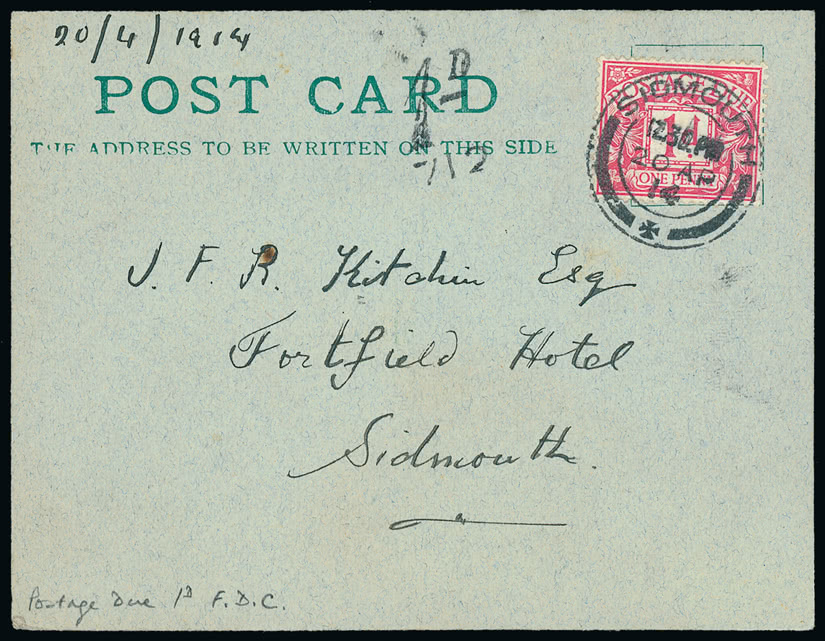 20/4/1914
POST CARD
THE ADDRESS TO BE WRITTEN ON THIS SIDE
1D
2
712
POSTAGE DUE
1
ONE PENNY
SIDMOUTH
12.30.PM
20 AP
14
J. F. R. Kitchin Esq
Fortfield Hotel
Sidmouth.
Postage Due 1D F.D.C.